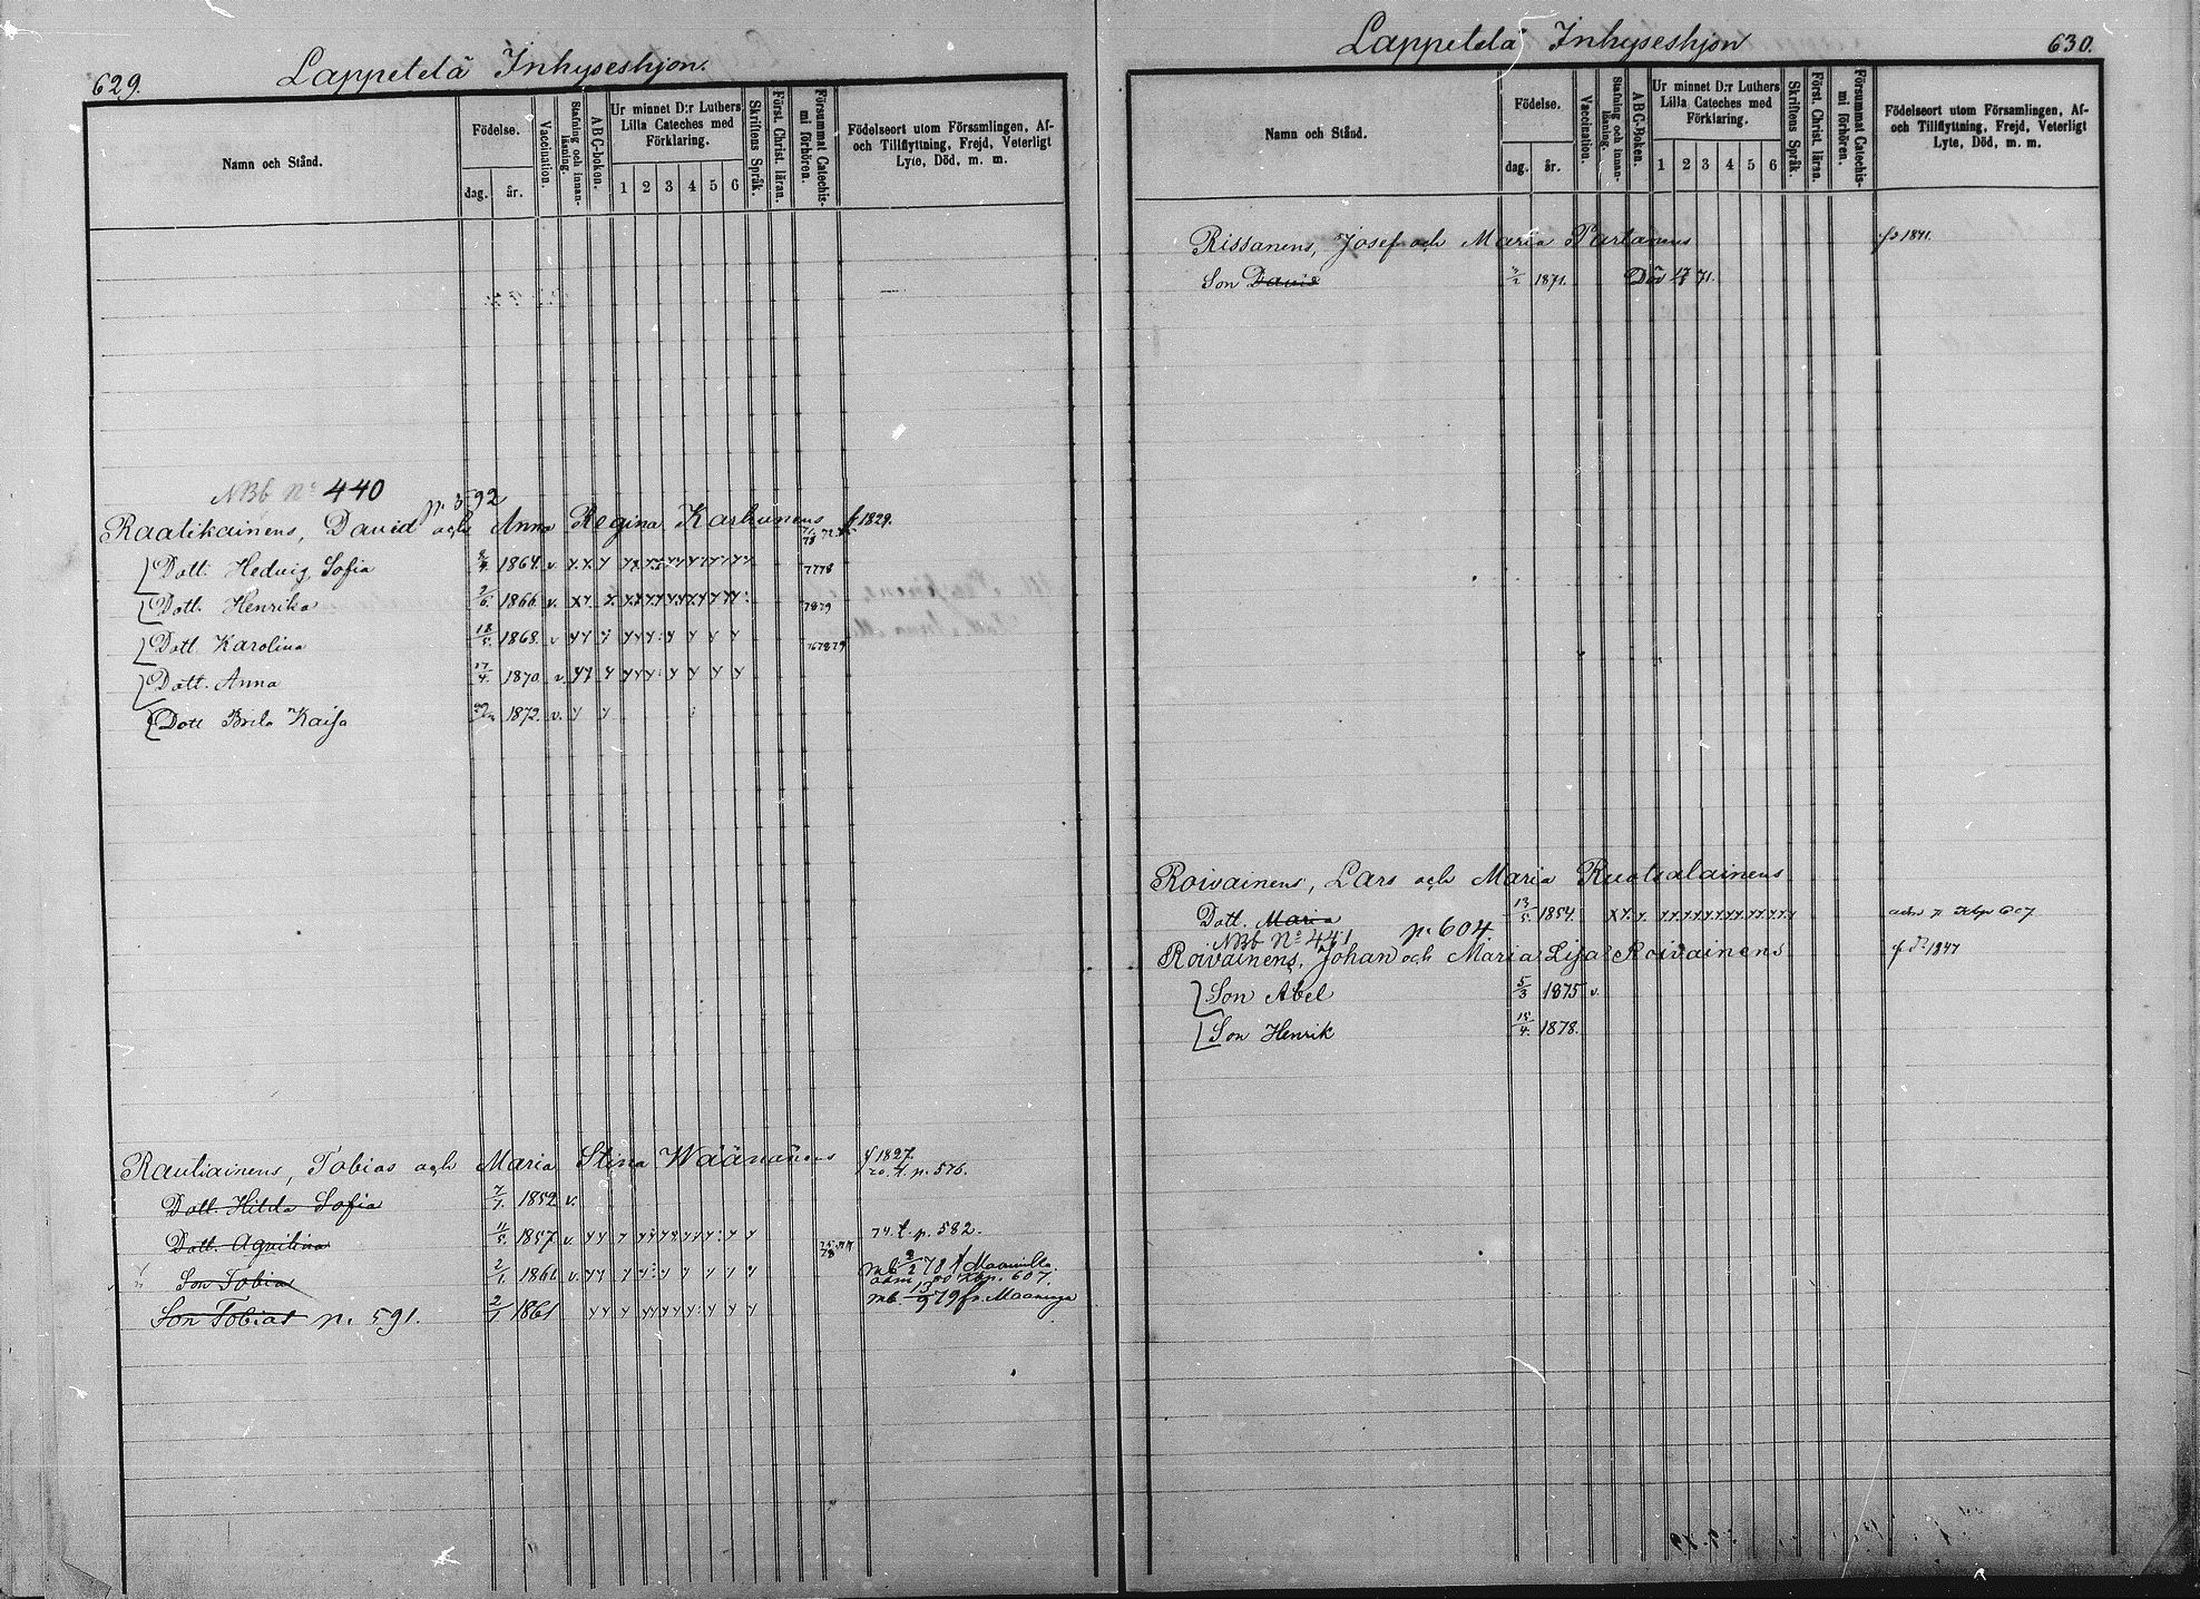 629.
Lappetelä Inhyseshjon.
Namn och Stånd.
Födelse.
dag. år.
Vaccination.
Stafning och innanläsning.
ABC-boken.
Ur minnet D:r Luthers Lilla Cateches med Förklaring.
1 2 3 4 5 6
Skriftens Språk.
Först. Christ. läran.
Försummat Catechismi förhören.
Födelseort utom Församlingen, Af- och Tillflyttning, Frejd, Veterligt Lyte, Död, m. m.
NBb No 440
p. 592
Raatikainens, David och Anna Regina Karhunens f 1829.
Dott. Hedvig Sofia 1864. v. 7778
Dott. Henrika 2/6 1866 v. 7879
Dott. Karolina 18/5. 1868. v 767879
Dott. Anna 17/4. 1870 v.
Dott Brita Kaisa 1872. v.
Rautiainens, Tobias och Maria Stina Wäänänens f 1827.
p. 576.
Dott. Hilda Sofia 7/7. 1852 v.
Dott. Aqvilina 11/5. 1857 v. 74. t. p. 582.
Son Tobias 2/1. 1861 v. mb 2/2 78 t Maaninka.
p. 607.
Son Tobias p. 591. 2/1 1861 mb. 79 fr. Maaninga
Lappetelä Inhyseshjon
630.
Namn och Stånd.
Födelse.
dag. år.
Vaccination.
Stafning och innanläsning.
ABC-Boken.
Ur minnet D:r Luthers Lilla Cateches med Förklaring.
1 2 3 4 5 6
Skriftens Språk.
Först. Christ. läran.
Försummat Catechismi förhören.
Födelseort utom Församlingen, Af- och Tillflyttning, Frejd, Veterligt Lyte, Död, m. m.
Rissanens, Josef och Maria Partanens 1841.
Son David 1871. Död 71.
Roivainens, Lars och Maria Ruotsalainens
Dott. Maria 13/5. 1854. 607
NBb No 441 p. 604
Roivainens, Johan och Maria Lisa Roivainens 1847
Son Abel 5/3 1875 v.
Son Henrik 15/4. 1878.